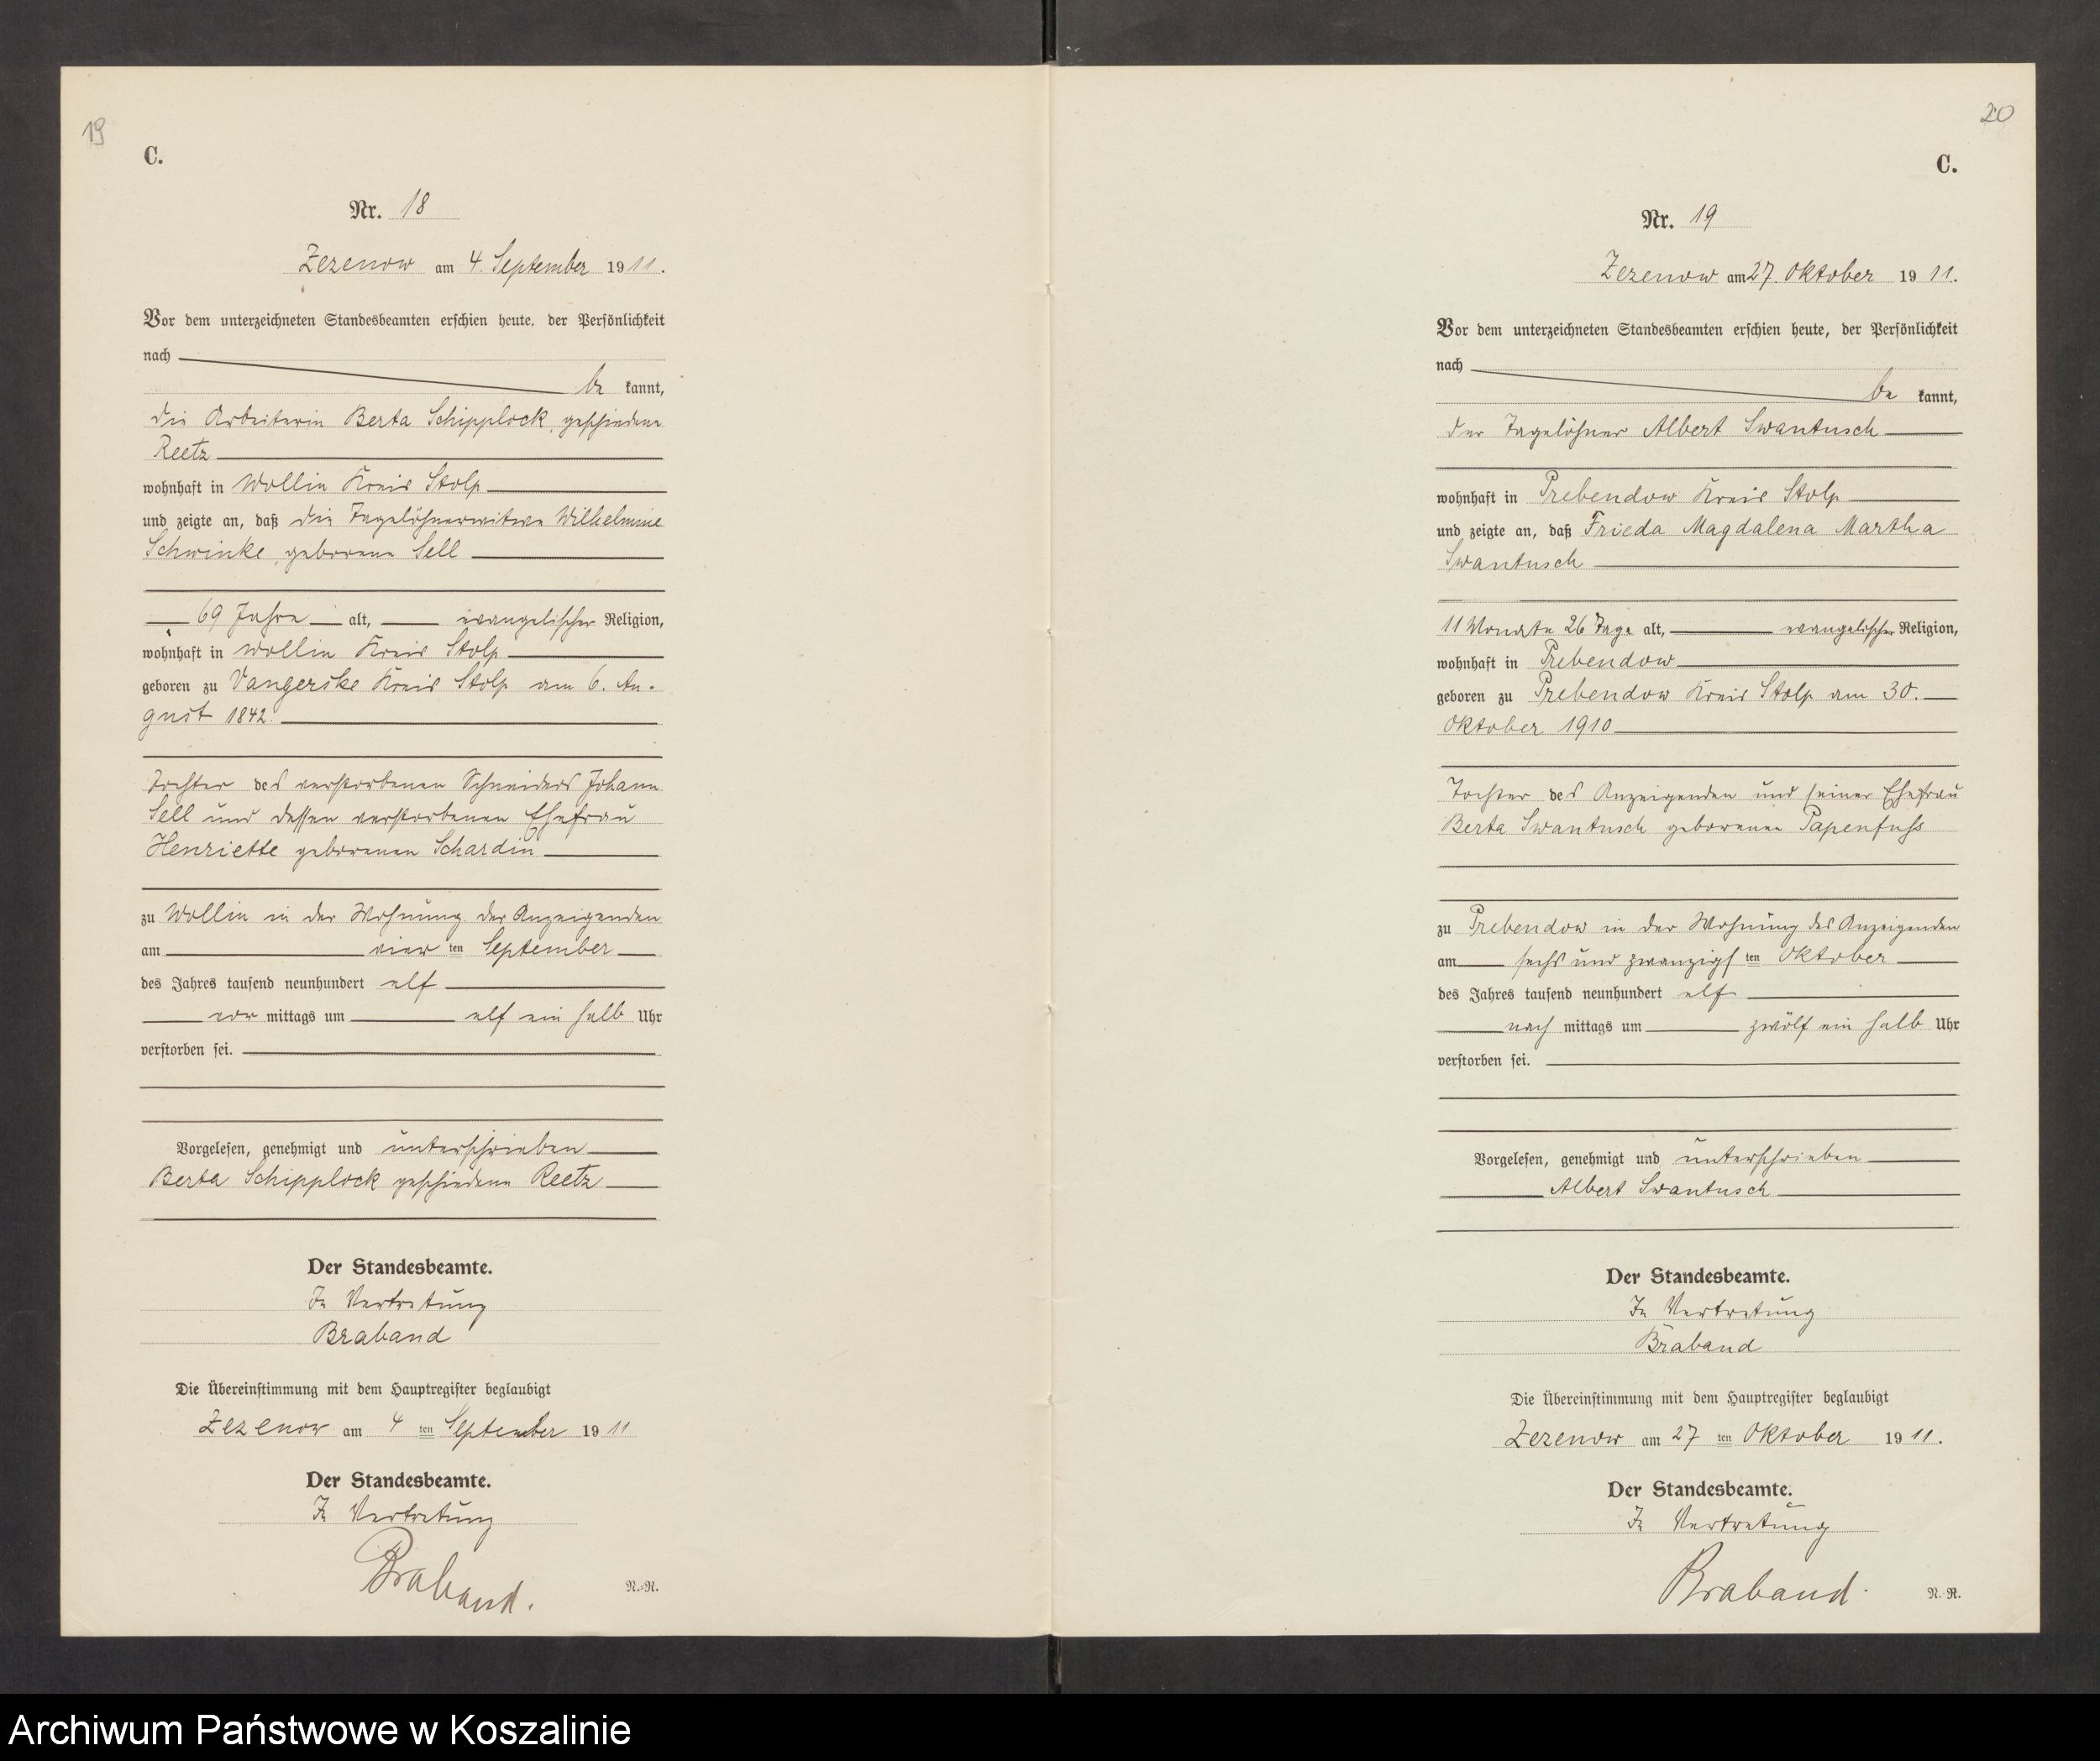 19
C.
Nr. 18
Zezenow am 4. September 1911.
Vor dem unterzeichneten Standesbeamten erschien heute, der Persönlichkeit
nach
be kannt,
die Arbeiterin Berta Schipplock, geschiedene
Reetz
wohnhaft in Wollin Kreis Stolp
und zeigte an, daß die Tagelöhnerwitwe Wilhelmine
Schwinke, geborene Sell
69 Jahre alt, evangelischer Religion,
wohnhaft in Wollin Kreis Stolp
geboren zu Vangerske Kreis Stolp am 6. Au-
gust 1842.
Tochter des verstorbenen Schneiders Johann
Sell und dessen verstorbenen Ehefrau
Henriette geborenen Schardin
zu Wollin in der Wohnung der Anzeigenden
am vier ten September
des Jahres tausend neunhundert elf
vor mittags um elf ein halb Uhr
verstorben sei.
Vorgelesen, genehmigt und unterschrieben
Berta Schipplock geschiedene Reetz
Der Standesbeamte.
In Vertretung
Braband
Die Übereinstimmung mit dem Hauptregister beglaubigt
Zezenow am 4 ten September 1911
Der Standesbeamte.
In Vertretung
Braband.
N.-R.
20
C.
Nr. 19
Zezenow am 27. Oktober 1911.
Vor dem unterzeichneten Standesbeamten erschien heute, der Persönlichkeit
nach
be kannt,
der Tagelöhner Albert Swantusch
wohnhaft in Prebendow Kreis Stolp
und zeigte an, daß Frieda Magdalena Martha
Swantusch
11 Monate 26 Tage alt, evangelischer Religion,
wohnhaft in Prebendow
geboren zu Prebendow Kreis Stolp am 30.
Oktober 1910
Tochter des Anzeigenden und seiner Ehefrau
Berta Swantusch geborenen Papenfuhs
zu Prebendow in der Wohnung des Anzeigenden
am sechs und zwanzigs ten Oktober
des Jahres tausend neunhundert elf
nach mittags um zwölf ein halb Uhr
verstorben sei.
Vorgelesen, genehmigt und unterschrieben
Albert Swantusch
Der Standesbeamte.
In Vertretung
Braband
Die Übereinstimmung mit dem Hauptregister beglaubigt
Zezenow am 27 ten Oktober 1911.
Der Standesbeamte.
In Vertretung
Braband.
N.-R.
Archiwum Państwowe w Koszalinie